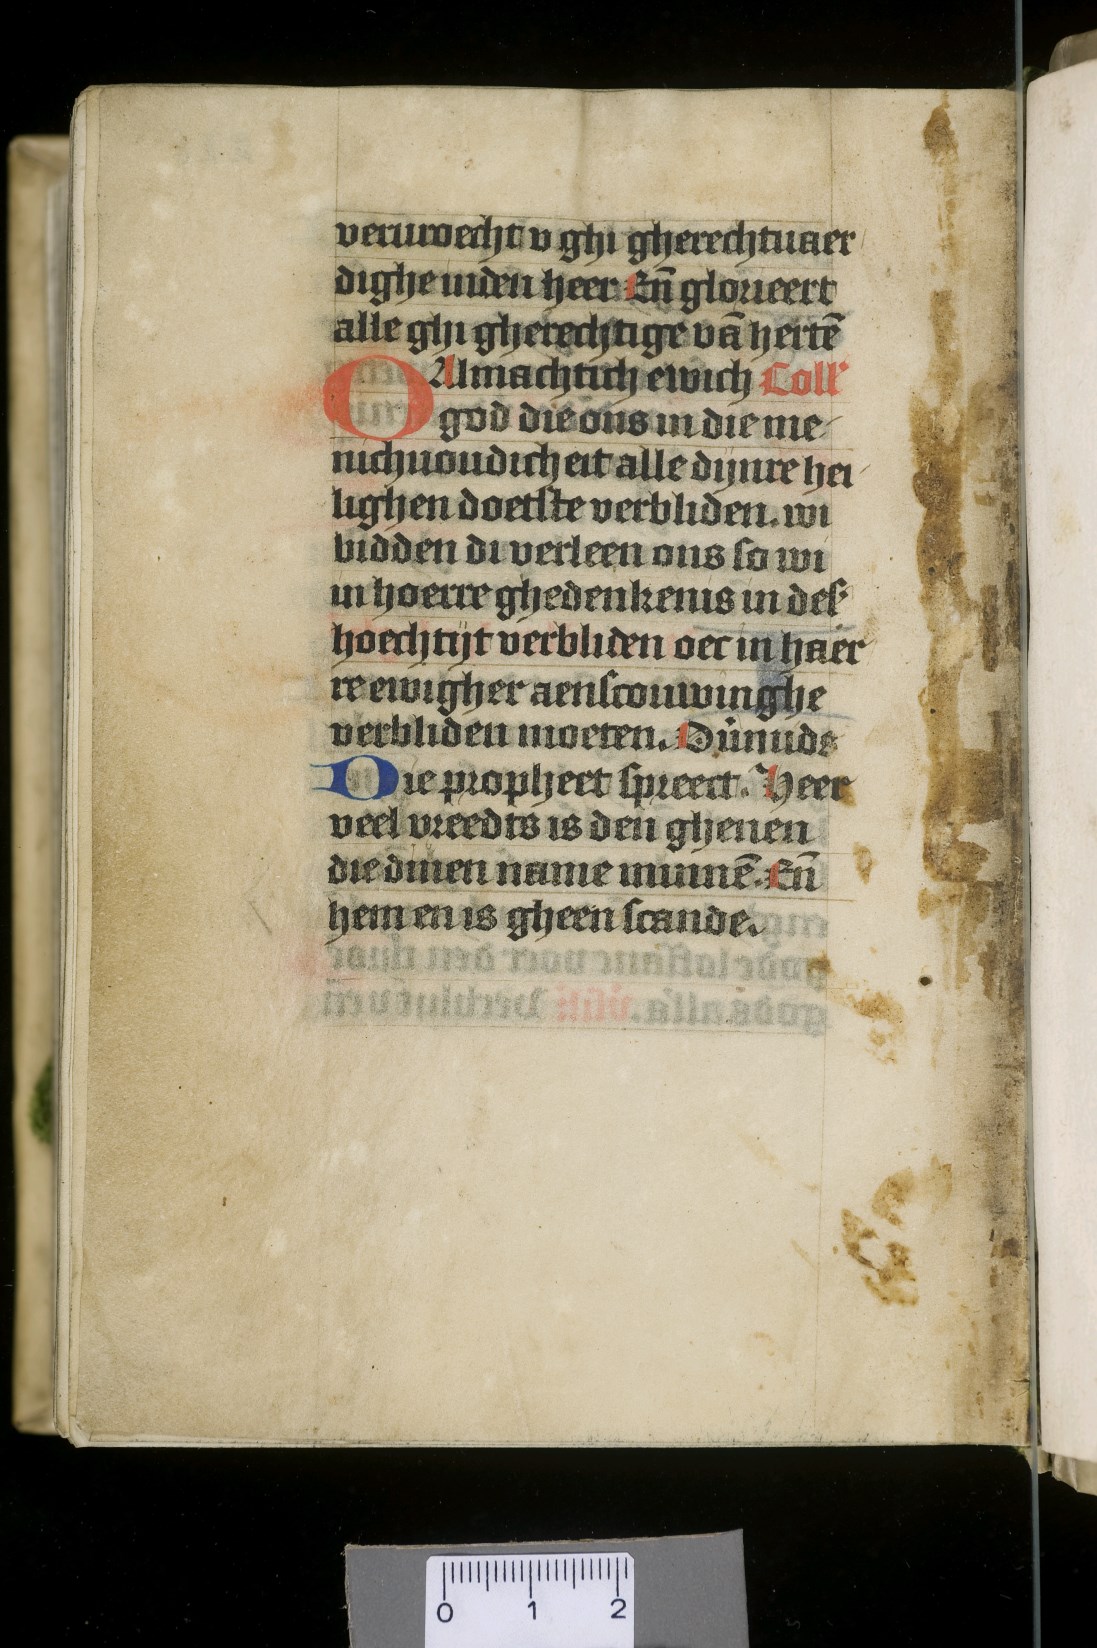 veruroecht v ghi gherechtuaer
dighe inden heer En̄ glorieert
alle ghi gherechtige vā hertē
O Almachtich ewich Coll'
god die ons in die me
nichuoudicheit alle dijnre hei
lighen doetste verbliden. wi
bidden di verleen ons so wi
in hoerre ghedenkenis in des'
hoechtijt verbliden oec in haer
re ewigher aenscouwinghe
verbliden moeten.
Die propheet spreect. Heer
veel vreedts is den ghenen
die dinen name minnē. En̄
hem en is gheen scande.
0 1 2